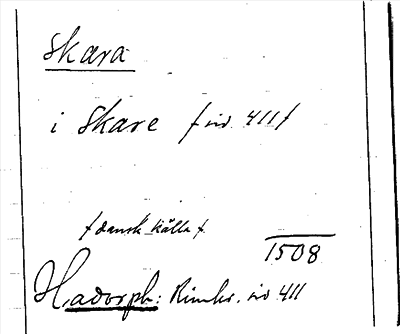 Skara
i Skare /sid. 411/
/dansk källa/.
1508
Hadorph: Rimkr. sid 411